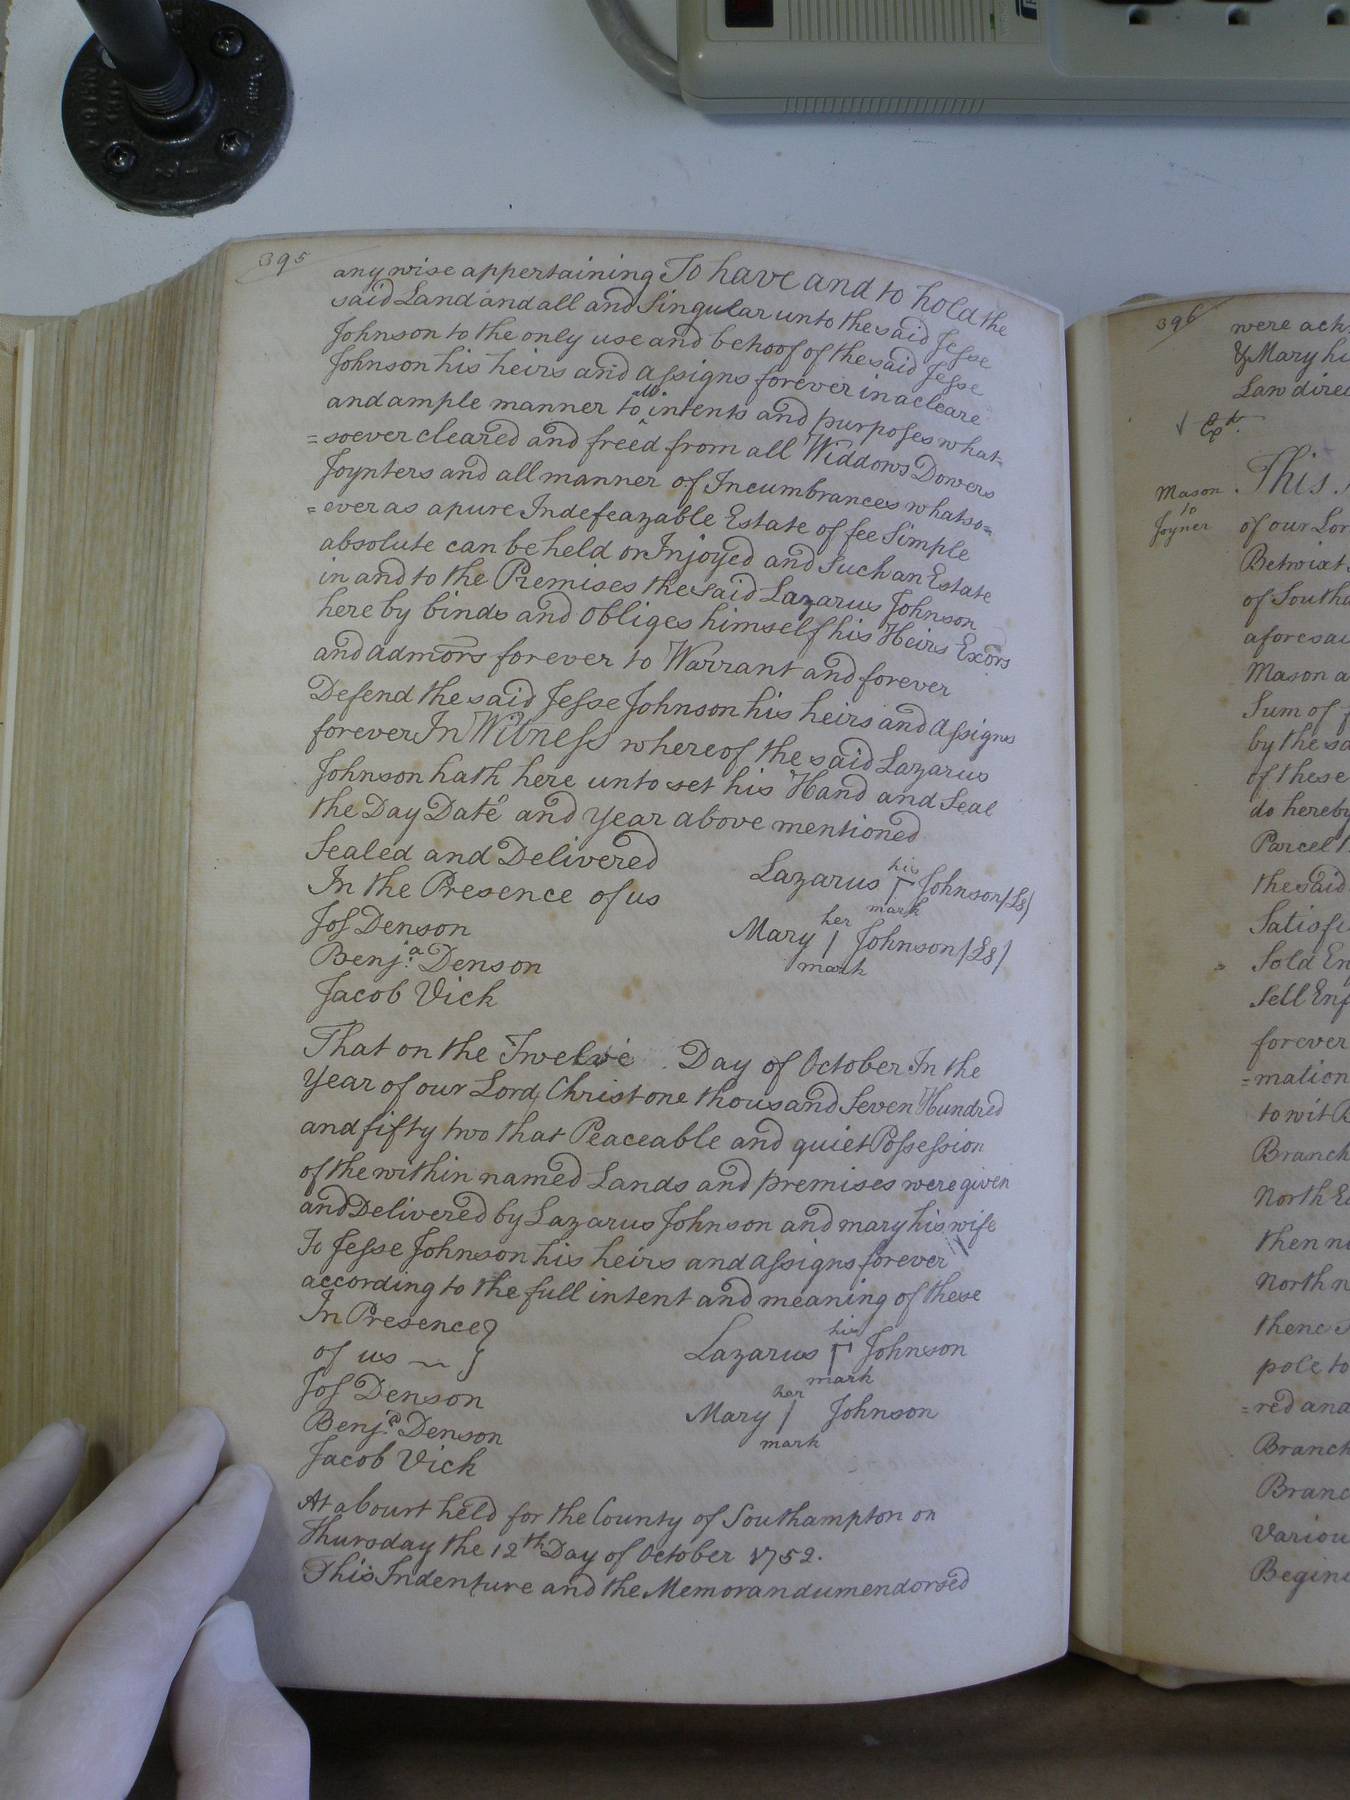 395
any wise appertaining To have and to hold the
said Land and all and Singular unto the said Jesse
Johnson to the only use and behoof of the said Jesse
Johnson his heirs and assigns forever in a cleare
and ample manner to all intents and purposes what-
=soever cleared and freed from all Widdows Dowers
Joynters and all manner of Incumbrances whatso=
=ever as a pure Indefeazable Estate of fee Simple
absolute can be held or Injoyed and Such an Estate
in and to the Premises the said Lazarus Johnson
here by binds and obliges himself his Heirs Exors
and admors forever to Warrant and forever
Defend the said Jesse Johnson his heirs and assigns
forever In Witness whereof the said Lazarus
Johnson hath here unto set his Hand and Seal
the Day Date and year above mentioned
Sealed and Delivered
In the Presence of us
Jos Denson
Benja. Denson
Jacob Vick
his
Lazarus Γ Johnson (Ls)
mark
her
Mary | Johnson (Ls)
mark
That on the Twelve Day of October In the
year of our Lord Christ one thousand Seven Hundred
and fifty two that Peaceable and quiet Possession
of the within named Lands and premises were given
and Delivered by Lazarus Johnson and mary his wife
To Jesse Johnson his heirs and assigns forever
according to the full intent and meaning of these
In Presence }
of us ~ }
Jos Denson
Benja. Denson
Jacob Vick
his
Lazarus Γ Johnson
mark
her
Mary | Johnson
mark
At a Court held for the County of Southampton on
Thursday the 12th Day of October 1752.
This Indenture and the Memorandum endorsed
396
were ack
& Mary hi
Law direc
Exd.
Mason
to
Joyner
This
of our Lor
Betwixt
of Southa
aforesai
Mason a
Sum of
by the sa
of these
do hereby
Parcel
the said
Satisfi
Sold En
Sell Enf
forever
=mation
to wit B
Branch
North Ea
then no
North n
thenc
pole to
=red and
Branch
Branc
Variou
Begini